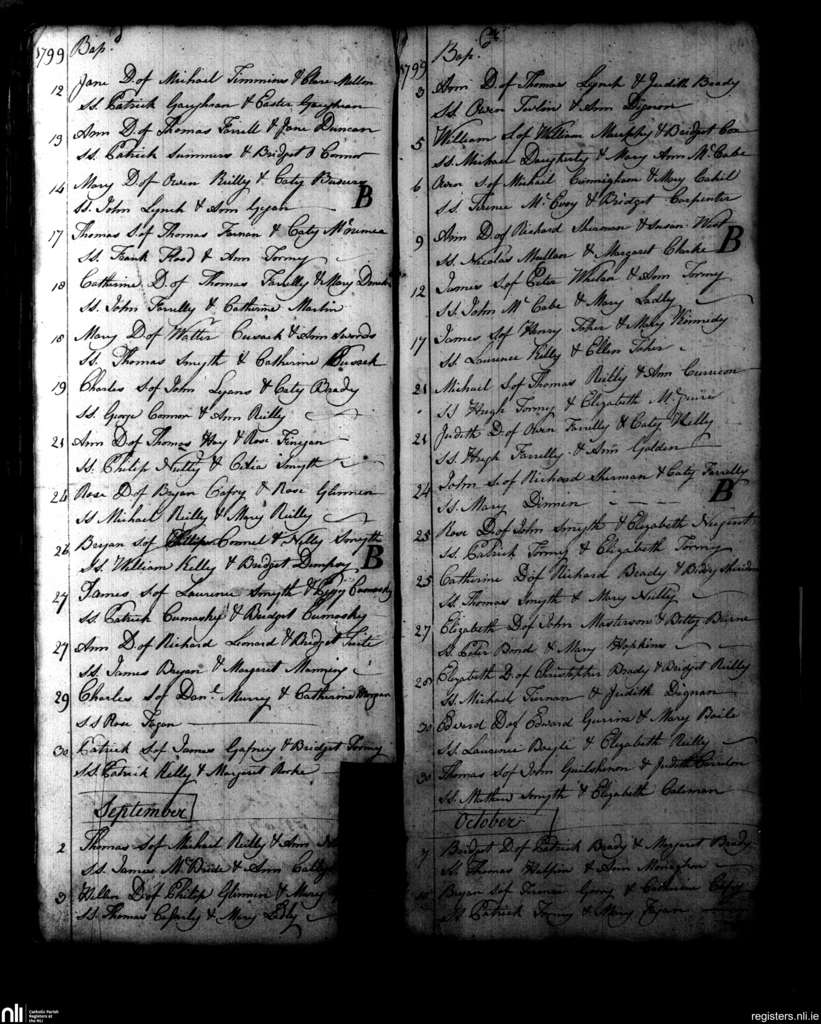 1799 Bap.d
12 Jane D. of Michael Timmins & Clare Mallon
Ss. Patrick Gaughran & Easter Gaughran
13 Ann D. of Thomas Farrell & Jane Duncan
Ss. Patrick Summers & Bridget O Connor
14 Mary D. of Owen Reilly & Caty
Ss. John Lynch & Ann B
17 Thomas S. of Thomas Farnan & Caty
Ss. Frank Flood & Ann Tormy
18 Catherine D. of Thomas Farrelly & Mary
Ss. John Farrelly & Catherine Martin
18 Mary D. of Walter Cusack & Ann Swords
Ss. Thomas Smyth & Catherine Cusack
19 Charles S. of John Lyons & Caty Brady
Ss. George Connor & Ann Reilly
21 Ann D. of Thomas Hoy & Rose Finegan
Ss. Philip Nulty & Celia Smyth
24 Rose D. of Bryan Cafry & Rose Glinnen
Ss. Michael Reilly & Mary Reilly
26 Bryan S. of Connel & Nelly Smyth
Ss. William Kelly & Bridget Dempsy B
27 James S. of Laurence Smyth & Cumasky
Ss. Patrick Cumasky & Bridget Cumasky
27 Ann D. of Richard Leonard & Bridget Tuite
Ss. James Bryan & Margaret Manning
29 Charles S. of Danl. Murry & Catherine Morgan
Ss Rose Fagan
30 Patrick S. of James Gafney & Bridget Tormy
Ss. Patrick Kelly & Margaret Rorke
September
2 Thomas S. of Michael Reilly & Ann
Ss. James McBride & Ann
3 Hellen D. of Philip Glinnen & Mary
Ss. Thomas Caffrly & Mary
1799 Bap.
3 Ann D. of Thomas Lynch & Judith Brady
Ss. Owen & Ann Dignan
5 William S. of William Murphy & Bridget Cox
Ss. Michael Daugherty & Mary Ann McCabe
6 Owen S. of Michael Cunnigham & Mary Cahil
Ss. Terence McEvoy & Bridget Carpenter
9 Ann D. of Richard Sherman & Susan West
Ss. Nicolas Mullan & Margaret Clarke B
12 James S. of Peter Whelan & Ann Tormy
Ss. John McCabe & Mary Ladly
17 James S. of Henry Toher & Mary Kennedy
Ss. Laurence Kelly & Ellen Toher
21 Michael S. of Thomas Reilly & Ann Curreon
Ss Hugh Tormy & Elizabeth McGuire
21 Judith D. of Owen Farrelly & Caty Kelly
Ss. Hugh Farrelly & Ann Golden
24 John S. of Richard Sherman & Caty Farrelly
Ss. Mary Dinnen B
25 Rose D. of John Smyth & Elizabeth Nugent
Ss. Patrick Tormy & Elizabeth Tormy
25 Catherine D. of Richard Brady & Biddy Sheridan
Ss. Thomas Smyth & Mary Nulty
27 Elizabeth D. of John Masterson & Betty Birne
Ss. Peter Bond & Mary Hopkins
28 Elizabeth D. of Christopher Brady & Bridget Reilly
Ss. Michael Turnan & Judith Dignan
30 Edward D. of Edward Gurrin & Mary Baile
Ss. Laurence Bayle & Elizabeth Reilly
30 Thomas S. of John Guilshenon & Judith
Ss. Mathew Smyth & Elizabeth Coleman
October
7 Bridget D. of Patrick Brady & Margaret Brady
Ss. Thomas Halpin & Ann Monaghan
Bryan S. of &
Ss Patrick Tormy & Mary Fagan
nli Catholic Parish
Registers at
the NLI
registers.nli.ie